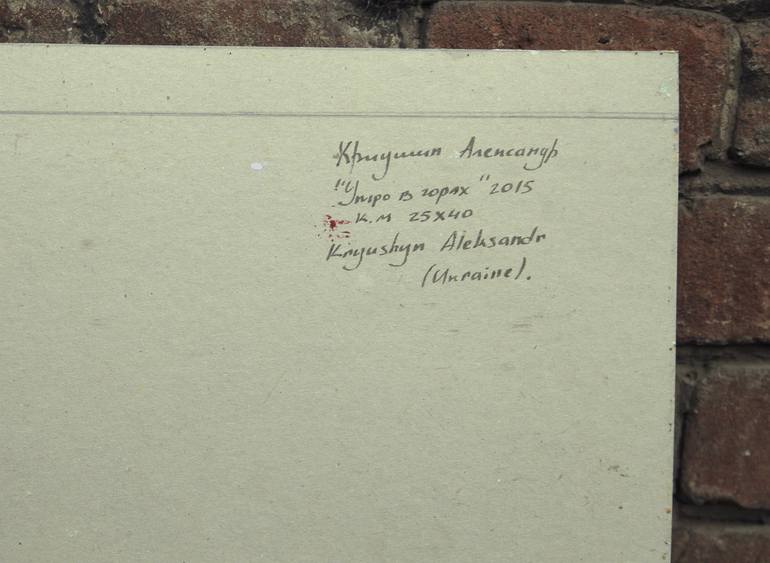 Криушин Александр
"Утро в горах" 2015
к.м 25х40
Kryushyn Aleksandr
(Ukraine).